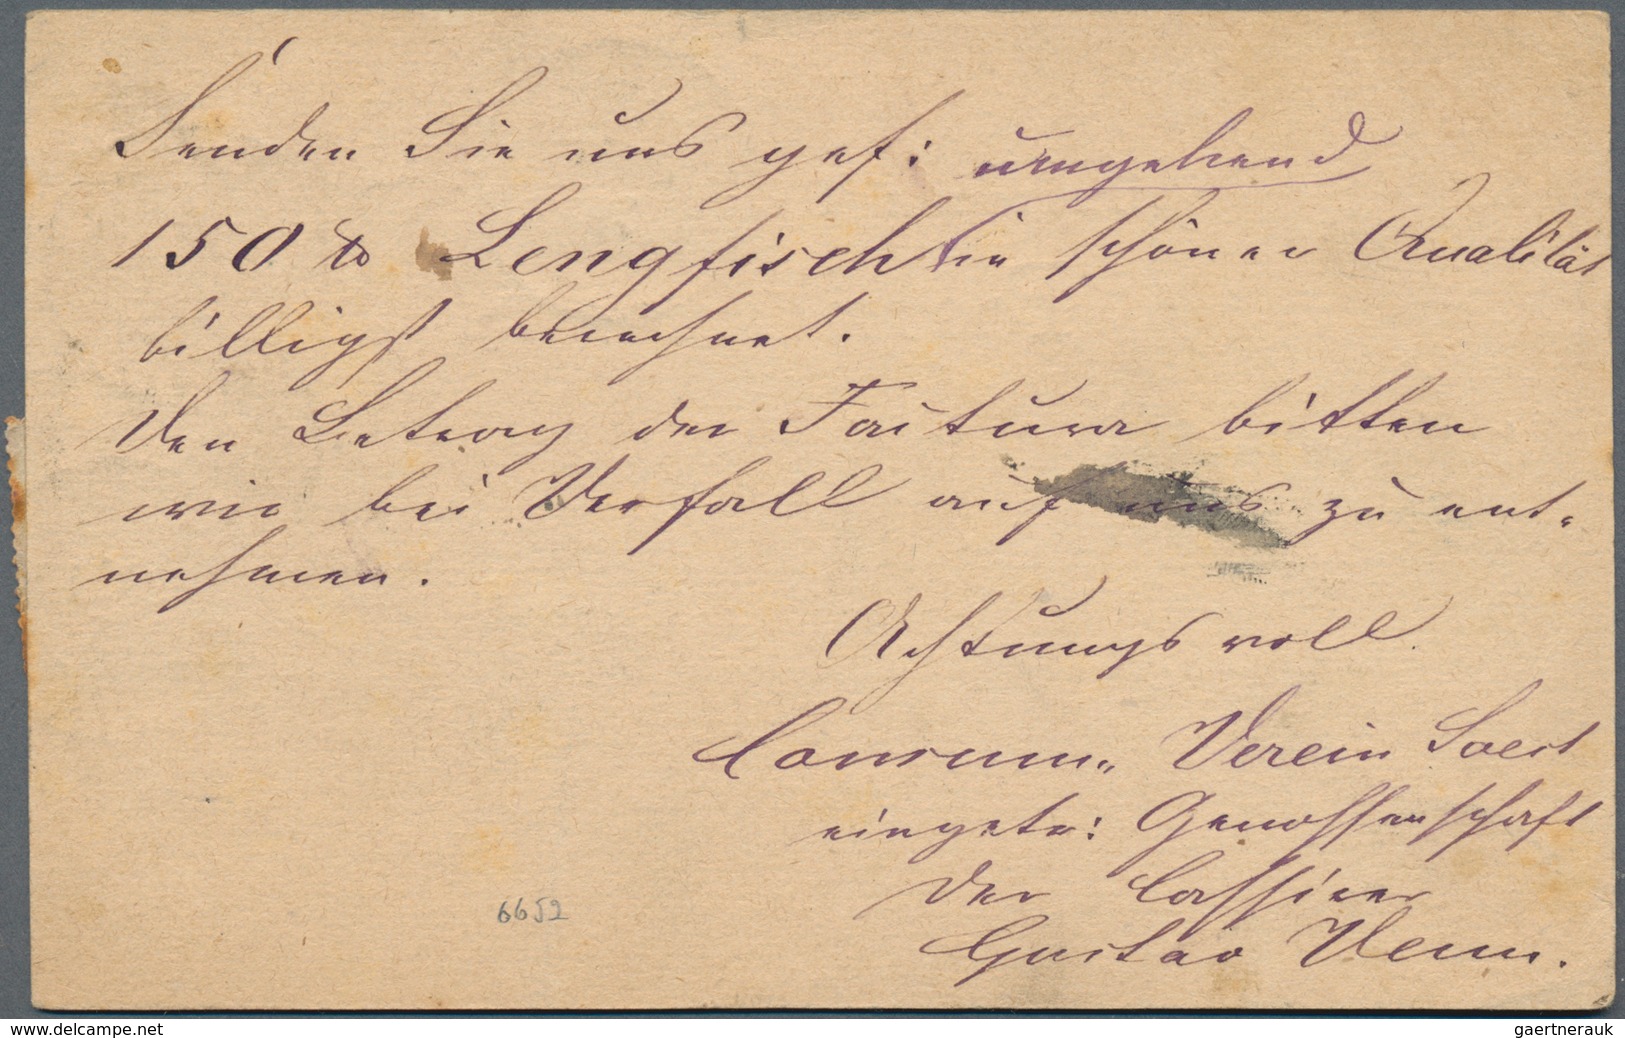 Senden Sie uns gef: umgehend
150 ℔ Lengfisch in schöner Qualität
billigst berechnet.
Den Betrag der Factura bitten
wir bei Verfall auf uns zu ent-
nehmen.
Achtungsvoll
Consum- Verein Soest
eingetr: Genossenschaft
Der Cassirer
Gustav
6652
www.delcampe.net
gaertnerauk